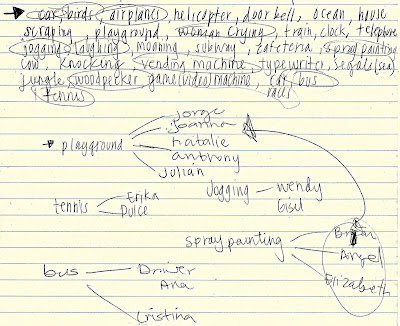 car birds, airplanes, helicopter, door bell, ocean, house
scraping, playground, woman crying, train, clock, telephone
jogging laughing moaning, subway, cafeteria, spray painting
cow, knocking vending machine, typewriter, (sea)
jungle, woodpecker game (video) machine, car bus
races
tennis
jorge
joanna
natalie
anthony
julian
playground
jogging wendy
Gisel
tennis Erika
Dulce
spray painting
Angel
Elizabeth
bus Driver
Ana
Cristina